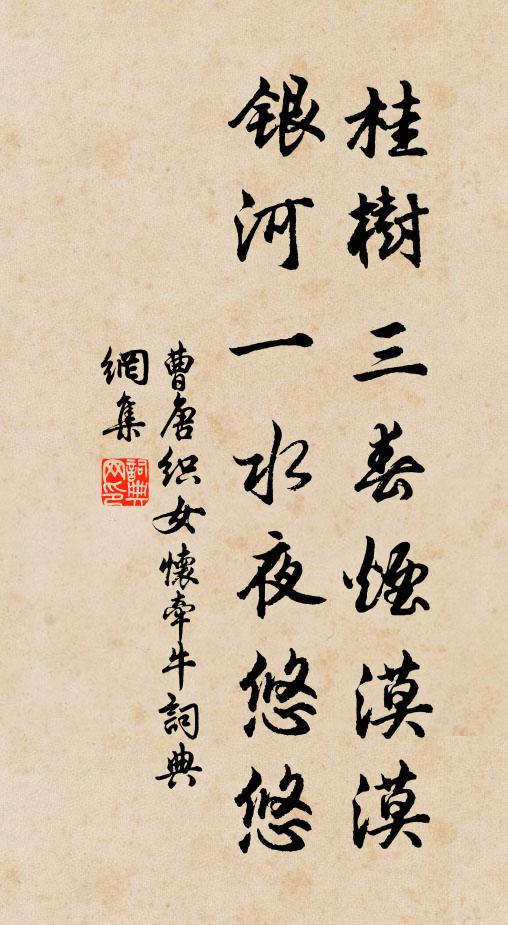 桂樹三春煙漠漠
銀河一水夜悠悠
曹唐織女懷牽牛詞典
網集
詞典
网印